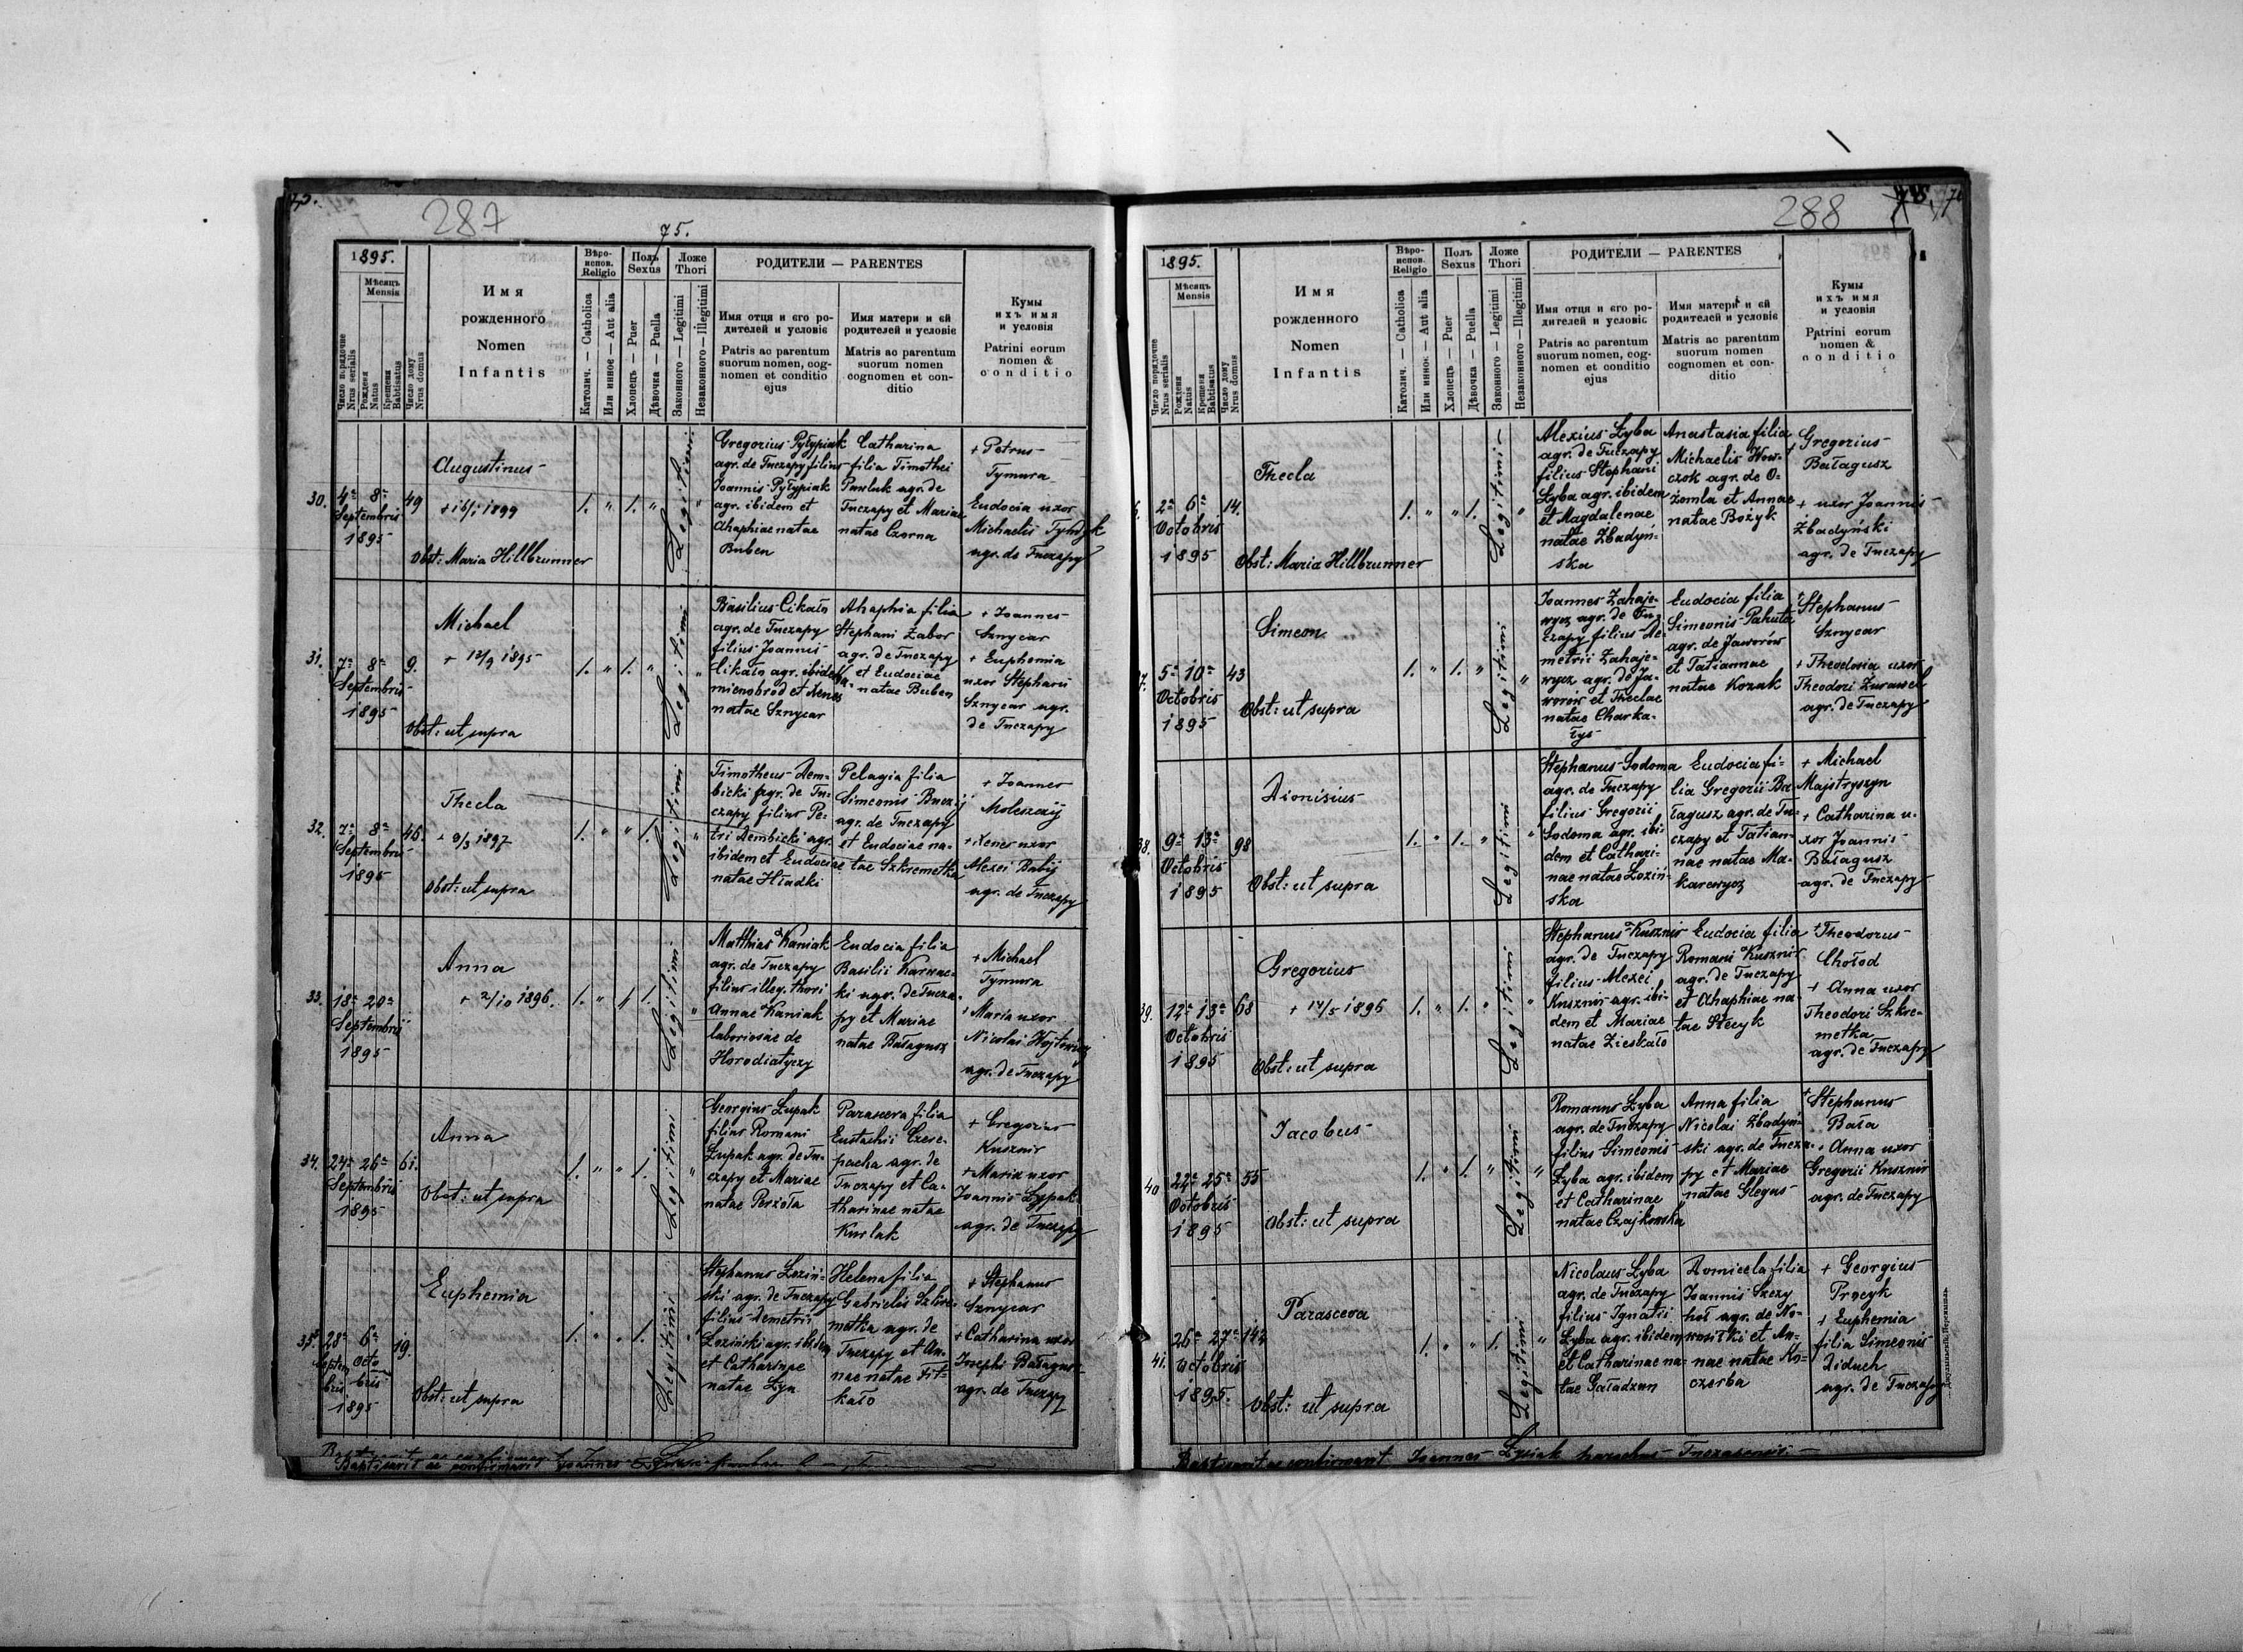 287
75.
1895.
Мѣсяць
Mensis
Число порядочне
Nrus serialis
Рожденя
Natus
Крещеня
Babtisatus
Число дому
Nrus domus
Имя
рожденного
Nomen
Infantis
Вѣро-
испов.
Religio
Католич. — Catholica
Или инное — Aut alia
Полъ
Sexus
Хлопець — Puer
Дѣвочка — Puella
Ложе
Thori
Законного — Legitimi
Незаконного — Illegitimi
РОДИТЕЛИ — PARENTES
Имя отця и єго ро-
дителей и условіє
Patris ac parentum
suorum nomen, cog-
nomen et conditio
ejus
Имя матери и єй
родителей и условіє
Matris ac parentum
suorum nomen
cognomen et con-
ditio
Кумы
ихъ имя
и условія
Patrini eorum
nomen &
conditio
30.
4a 8a
Septembris
1895
49
Augustinus
1899
Obst: Maria Hillbrunner
1. " 1. "
Legitimi
Gregorius Pyłypiak
agr. de Tuczapy filius
Joannis Pyłypiak
agr. ibidem et
Ahaphiae natae
Buben
Catharina
filia Timothei
Pawluk agr. de
Tuczapy et Mariae
natae Czorna
+ Petrus
Tymura
Eudocia uxor
Michaelis
agr. de Tuczapy
31.
7a 8a
Septembris
1895
9.
Michael
+ 12/9 1895
Obst: ut supra
1. " 1. "
Legitimi
Basilius Cikało
agr. de Tuczapy
filius Joannis
Cikało agr. ibidem
mienobrod et Xenae
natae Sznycar
Ahaphia filia
Stephani Zabor
agr. de Tuczapy
et Eudociae
natae Buben
+ Joannes
Sznycar
+ Euphemia
uxor Stephani
Sznycar agr.
de Tuczapy
32.
7a 8a
Septembris
1895
46.
Thecla
+ 9/3 1897
Obst: ut supra
1. " " 1.
Legitimi
Timotheus Dem-
bicki agr. de Tu-
czapy filius Pe-
tri Dembicki agr.
ibidem et Eudociae
natae Hładki
Pelagia filia
Simeonis Buczij
agr. de Tuczapy
et Eudociae na-
tae Szkremetka
+ Joannes
Moleszczij
+ Xenes uxor
Alexei Babij
agr. de Tuczapy
33.
18a 20a
Septembris
1895
Anna
+ 2/10 1896.
1. " " 1.
Legitimi
Matthias Kaniak
agr. de Tuczapy
filius illeg. thori
Annae Kaniak
laboriosae de
Horodiatyczy
Eudocia filia
Basilii Karwac-
ki agr. de Tucza-
py et Mariae
natae Bałagusz
+ Michael
Tymura
+ Maria uxor
Nicolai Wojtowicz
agr. de Tuczapy
34.
24a 26a
Septembris
1895
61.
Anna
Obst: ut supra
1. " " 1.
Legitimi
Georgius Łupak
filius Romani
Łupak agr. de Tu-
czapy et Mariae
natae Perżoła
Parascera filia
Eustachii Czere-
pacha agr. de
Tuczapy et Ca-
tharinae natae
Kurlak
+ Gregorius
Kusznir
+ Maria uxor
Joannis Łypak
agr. de Tuczapy
35.
28a 6a
Septem Octo
bris bris
1895
19.
Euphemia
Obst: ut supra
1. " " 1.
Legitimi
Stephanus Łoziń-
ski agr. de Tuczapy
filius Demetrii
Łoziński agr. ibidem
et Catharinae
natae Łyn
Helena filia
Gabrielis Szkre-
metka agr. de
Tuczapy et An-
nae natae Fit-
kało
+ Stephanus
Sznycar
+ Catharina uxor
Josephi Bałagusz
agr. de Tuczapy
288
1895.
Мѣсяць
Mensis
Число порядочне
Nrus serialis
Рожденя
Natus
Крещеня
Babtisatus
Число дому
Nrus domus
Имя
рожденного
Nomen
Infantis
Вѣро-
испов.
Religio
Католич. — Catholica
Или инное — Aut alia
Полъ
Sexus
Хлопець — Puer
Дѣвочка — Puella
Ложе
Thori
Законного — Legitimi
Незаконного — Illegitimi
РОДИТЕЛИ — PARENTES
Имя отця и єго ро-
дителей и условіє
Patris ac parentum
suorum nomen, cog-
nomen et conditio
ejus
Имя матери и єй
родителей и условіє
Matris ac parentum
suorum nomen
cognomen et con-
ditio
Кумы
ихъ имя
и условія
Patrini eorum
nomen &
conditio
2a 6a
Octobris
1895
14.
Thecla
Obst: Maria Hillbrunner
1. " " 1.
Legitimi
Alexius Łyba
agr. de Tuczapy
filius Stephani
Łyba agr. ibidem
et Magdalenae
natae Zbadyń-
ska
Anastasia filia
Michaelis How-
czok agr. de O-
żomla et Annae
natae Bożyk
Gregorius
Bałagusz
+ uxor Joannis
Zbadyński
agr. de Tuczapy
5a 10a
Octobris
1895
43
Simeon
Obst: ut supra
1. " 1. "
Legitimi
Joannes Zahaje-
wycz agr. de Tu-
czapy filius De-
metrii Zahaje-
wycz agr. de Ja-
worów et Theclae
natae Charka-
łys
Eudocia filia
Simeonis Pakuta
agr. de Jaworów
et Tatiannae
natae Kozak
+ Stephanus
Sznycar
+ Theodosia uxor
Theodori Żurawel
agr. de Tuczapy
38.
9a 13a
Octobris
1895
98
Dionisius
Obst: ut supra
1. " 1. "
Legitimi
Stephanus Sodoma
agr. de Tuczapy
filius Gregorii
Sodoma agr. ibi-
dem et Cathari-
nae natae Łoziń-
ska
Eudocia fi-
lia Gregorii Ba-
łagusz agr. de Tu-
czapy et Tatian-
nae natae Ma-
karewycz
+ Michael
Majstryszyn
+ Catharina u-
xor Joannis
Bałagusz
agr. de Tuczapy
39.
12a 13a
Octobris
1895
68
Gregorius
+ 14/5 1896
Obst: ut supra
1. " 1. "
Legitimi
Stephanus Kusznir
agr. de Tuczapy
filius Alexei
Kusznir agr. ibi-
dem et Mariae
natae Zieskało
Eudocia filia
Romani Kusznir
agr. de Tuczapy
et Ahaphiae na-
tae Stecyk
+ Theodorus
Chołod
+ Anna uxor
Theodori Szkre-
metka
agr. de Tuczapy
40
22a 25a
Octobris
1895
55
Jacobus
Obst: ut supra
1. " 1. "
Legitimi
Romanus Łyba
agr. de Tuczapy
filius Simeonis
Łyba agr. ibidem
et Catharinae
natae Czajkowska
Anna filia
Nicolai Zbadyń-
ski agr. de Tucza-
py et Mariae
natae Glegus
+ Stephanus
Bała
+ Anna uxor
Gregorii Kusznir
agr. de Tuczapy
41.
26a 27a
Octobris
1895.
142
Parascera
Obst: ut supra
1. " " 1.
Legitimi
Nicolaus Łyba
agr. de Tuczapy
filius Ignatii
Łyba agr. ibidem
et Catharinae na-
tae Gaładzun
Domicela filia
Joannis Szczy
hoł agr. de No-
wosiłki et An-
nae natae Ko-
czerba
+ Georgius
Procyk
+ Euphemia
filia Simeonis
Diduch
agr. de Tuczapy
Baptisavit ac confirmavit Joannes
Baptisavit ac confirmavit Joannes Łysiak parochus Tuczapensis